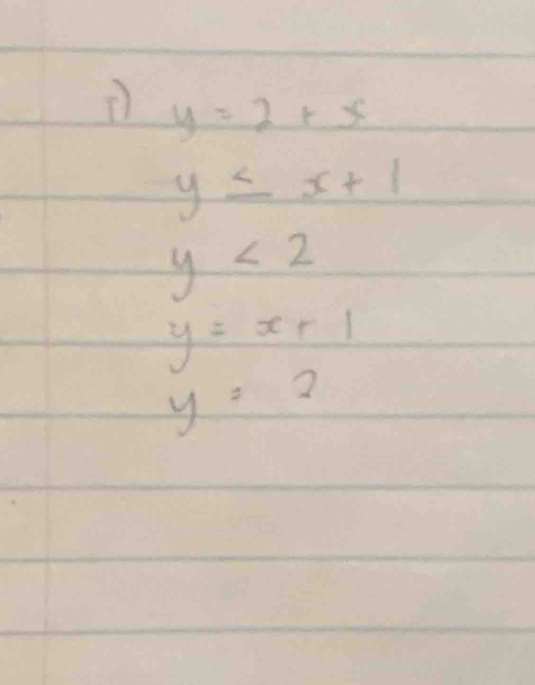 1) y = 2 + x
y ≤ x + 1
y < 2
y = x + 1
y = 2